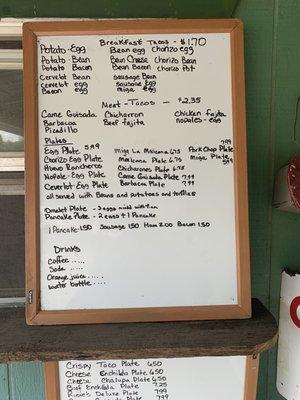 Breakfast Tacos - $1.70
Potato - Egg Bean egg Chorizo egg
Potato - Bean Bean Cheese Chorizo Bean
Potato Bacon Bacon Bean Chorizo Pot
Cervelot Bean sausage Bean
Cervelot egg sausage egg
Bacon egg Miga egg
Meat - Tacos - $2.35
Carne Guisada Chicharron Chicken fajita
Barbacoa Beef fajita nopales - egg
Picadillo
Plates
Egg Plate 5.99 Miga La Mexicana 6.75 Pork Chop Plate 7.99
Chorizo Egg Plate Mexicana Plate 6.75 Miga Plate 5.99
Huevo Rancheros Chicharrones Plate 6.75
Nopale - Egg Plate Carne Guisada Plate 7.99
Ceverlot - Egg Plate Barbacoa Plate 7.99
all served with Beans and potatoes and tortillas
Omelet Plate - 3 eggs
Pancake Plate - 2 eggs + 1 Pancake
1 Pancake 1.50 Sausage 1.50 Ham 2.00 Bacon 1.50
Drinks
Coffee.....
Soda .....
Orange juice.....
water bottle....
Crispy Taco Plate 6.50
Cheese Enchilada Plate 6.50
Cheese Chalupa Plate 6.50
Beef Enchilada Plate 7.25
Deluxe Plate 7.99
Plate 7.99